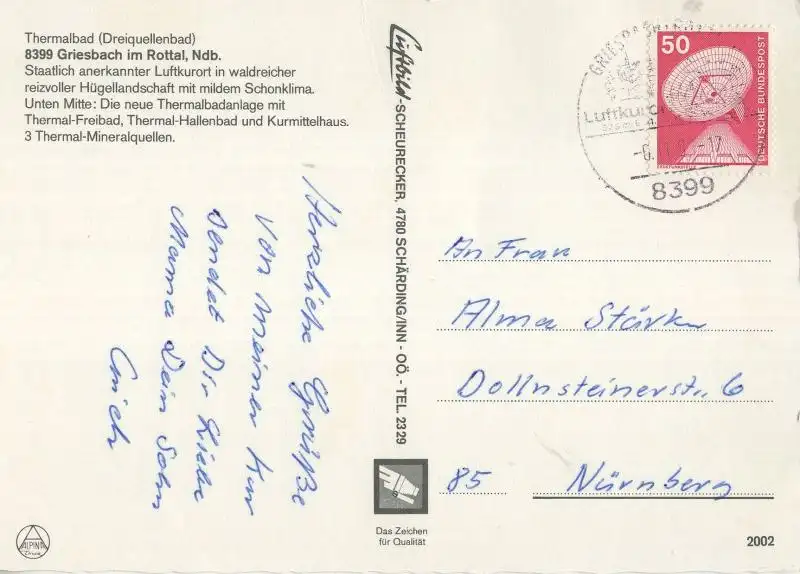 Thermalbad (Dreiquellenbad)
8399 Griesbach im Rottal, Ndb.
Staatlich anerkannter Luftkurort in waldreicher
reizvoller Hügellandschaft mit mildem Schonklima.
Unten Mitte: Die neue Thermalbadanlage mit
Thermal-Freibad, Thermal-Hallenbad und Kurmittelhaus.
3 Thermal-Mineralquellen.
Herzliche Grüße
von meiner Kur
sendet Dir liebe
Mama Dein Sohn
Erich
Luftbild-SCHEURECKER, 4780 SCHÄRDING/INN - OÖ. - TEL. 23 29
Das Zeichen
für Qualität
ALPINA
Druck
50
DEUTSCHE BUNDESPOST
Luftkurort
8399
An Frau
Alma Stärk
Dollnsteinerstr. 6
85 Nürnberg
2002